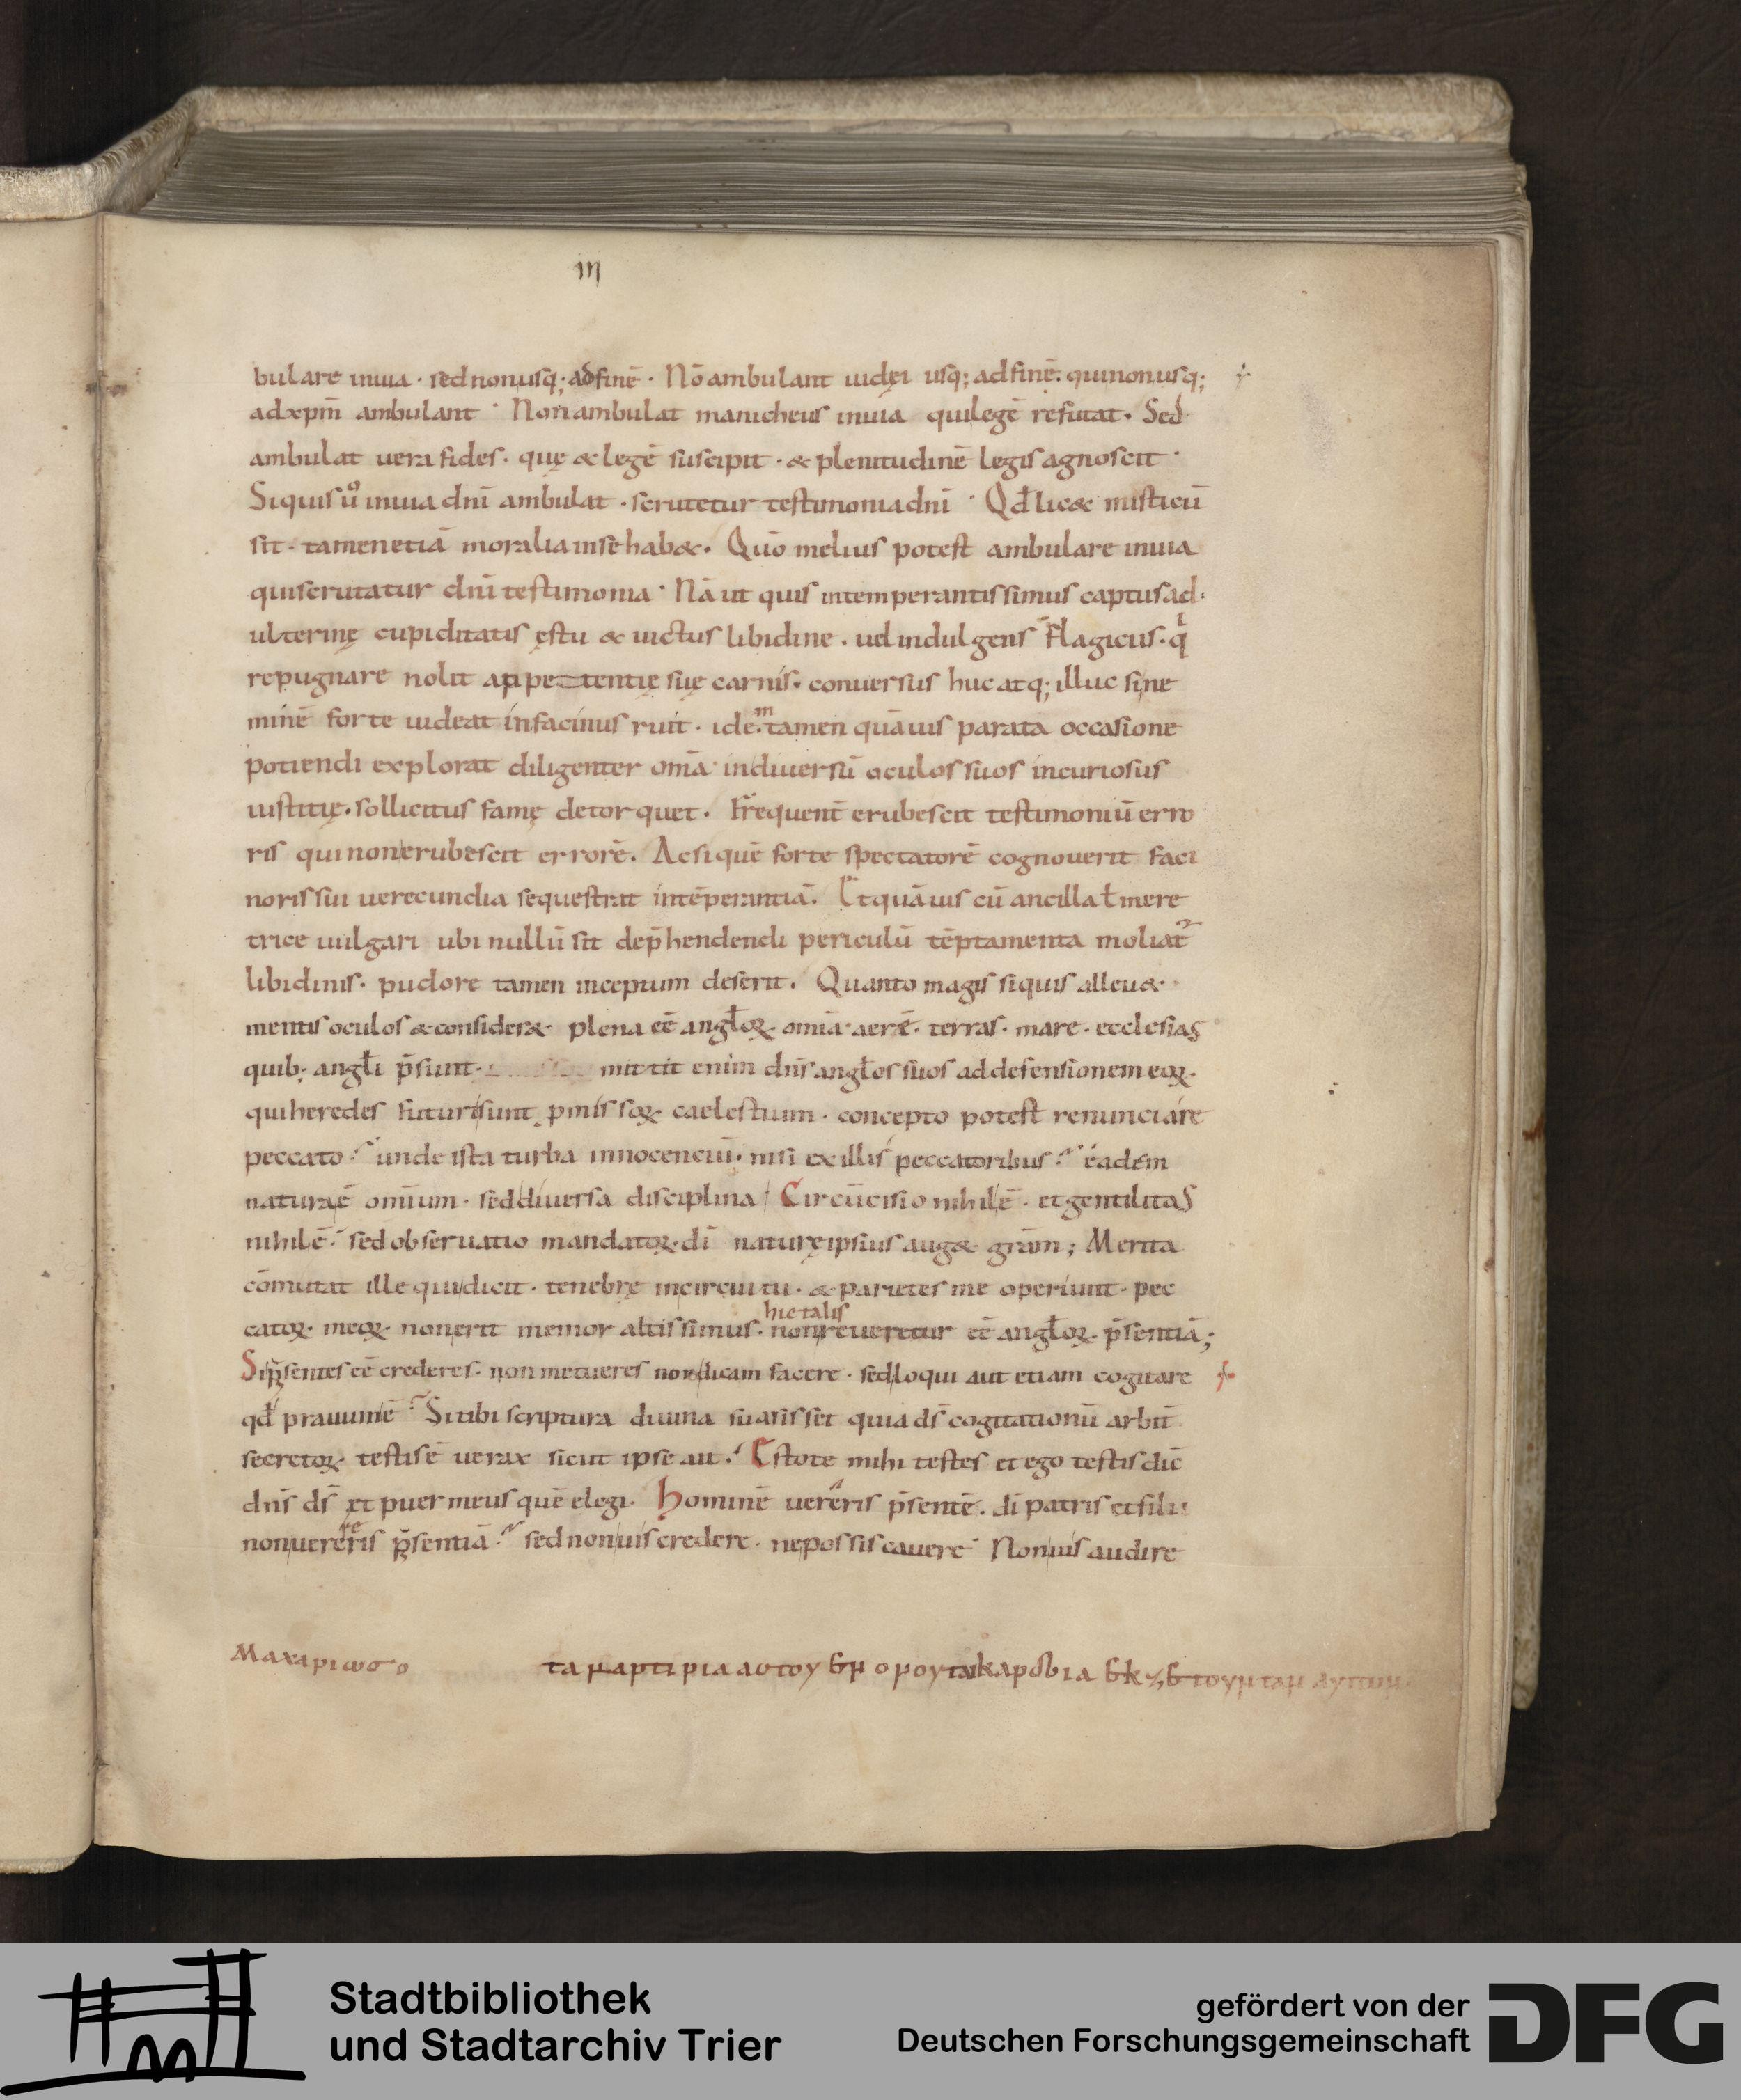 III
bulare inuia · sed non usq; ad finē · Nō ambulant iudęi usq; ad finē. qui non usq;
ad xp̄m ambulant · Non ambulat manicheus inuia qui legē refutat. Sed
ambulat uera fides. quę & legē suscipit · & plenitudinē legis agnoscit ·
Siquis ů inuia dnī ambulat · scrutetur testimonia dnī · Qđ lic& misticū
sit · tamen etiā moralia in se hab&. Quō melius potest ambulare inuia
qui scrutatur dnī testimonia · Nā ut quis intemperantissimus captus ad
ulterinę cupiditatis ęstu & uictus libidine . uel indulgens flagicus. q
repugnare nolit appetentię suę carnis. conuersus huc atq; illuc si ne
minē forte uideat in facinus ruit . idem tamen quāuis parata occasione
potiendi explorat diligenter omā in diuersū oculos suos incuriosus
iustitię. sollicitus famę detorquet. Frequent̄ erubescit testimoniū erro
ris qui non erubescit errorē. Ac si quē forte spectatorē cognouerit faci
noris sui uerecundia sequestrat intēperantiā. Et quāuis cū ancilla ł mere
trice uulgari ubi nullū sit dep̄hendendi periculū tēptamenta moliat
libidinis. pudore tamen inceptum deserit. Quanto magis siquis alleu&
mentis oculos & consider& plena eē angłoꝝ omīa aerē. terras. mare. ecclesias
quib; angłi p̄sunt. mittit enim dns̄ angłos suos ad defensionem eoꝝ.
qui heredes futuri sunt pmissoꝝ caelestium . concepto potest renunciare
peccato unde ista turba innocenciū. nisi ex illis peccatoribus eadem
natura ē omīum . sed diuersa disciplina Circūcisio nihil ē . et gentilitas
nihil ē sed obseruatio mandatoꝝ dī naturę ipsius aug& grām; Merita
cōmutat ille qui dicit . tenebrę in circuitu . & parietes me operiunt . pec
catoꝝ meoꝝ non erit memor altissimus. non reueretur eē angłoꝝ p̄sentiā;
hic talis
Si p̄sentes eē crederes. non metueres non dicam facere . sed loqui aut etiam cogitare
qđ prauum ē Si tibi scriptura diuina suasisset quia ds̄ cogitationū arbit̄
secretoꝝ testis ē uerax sicut ipse ait. Estote mihi testes et ego testis dic̄
dns̄ ds̄ et puer meus quē elegi. Hominē uereris p̄sentē. dī patris et filii
non uereris p̄sentiā sed non uis credere . ne possis cauere Non uis audire
Μαχαριωσ ο τα μαρτιρια αοτου
Stadtbibliothek
und Stadtarchiv Trier
gefördert von der
Deutschen Forschungsgemeinschaft
DFG